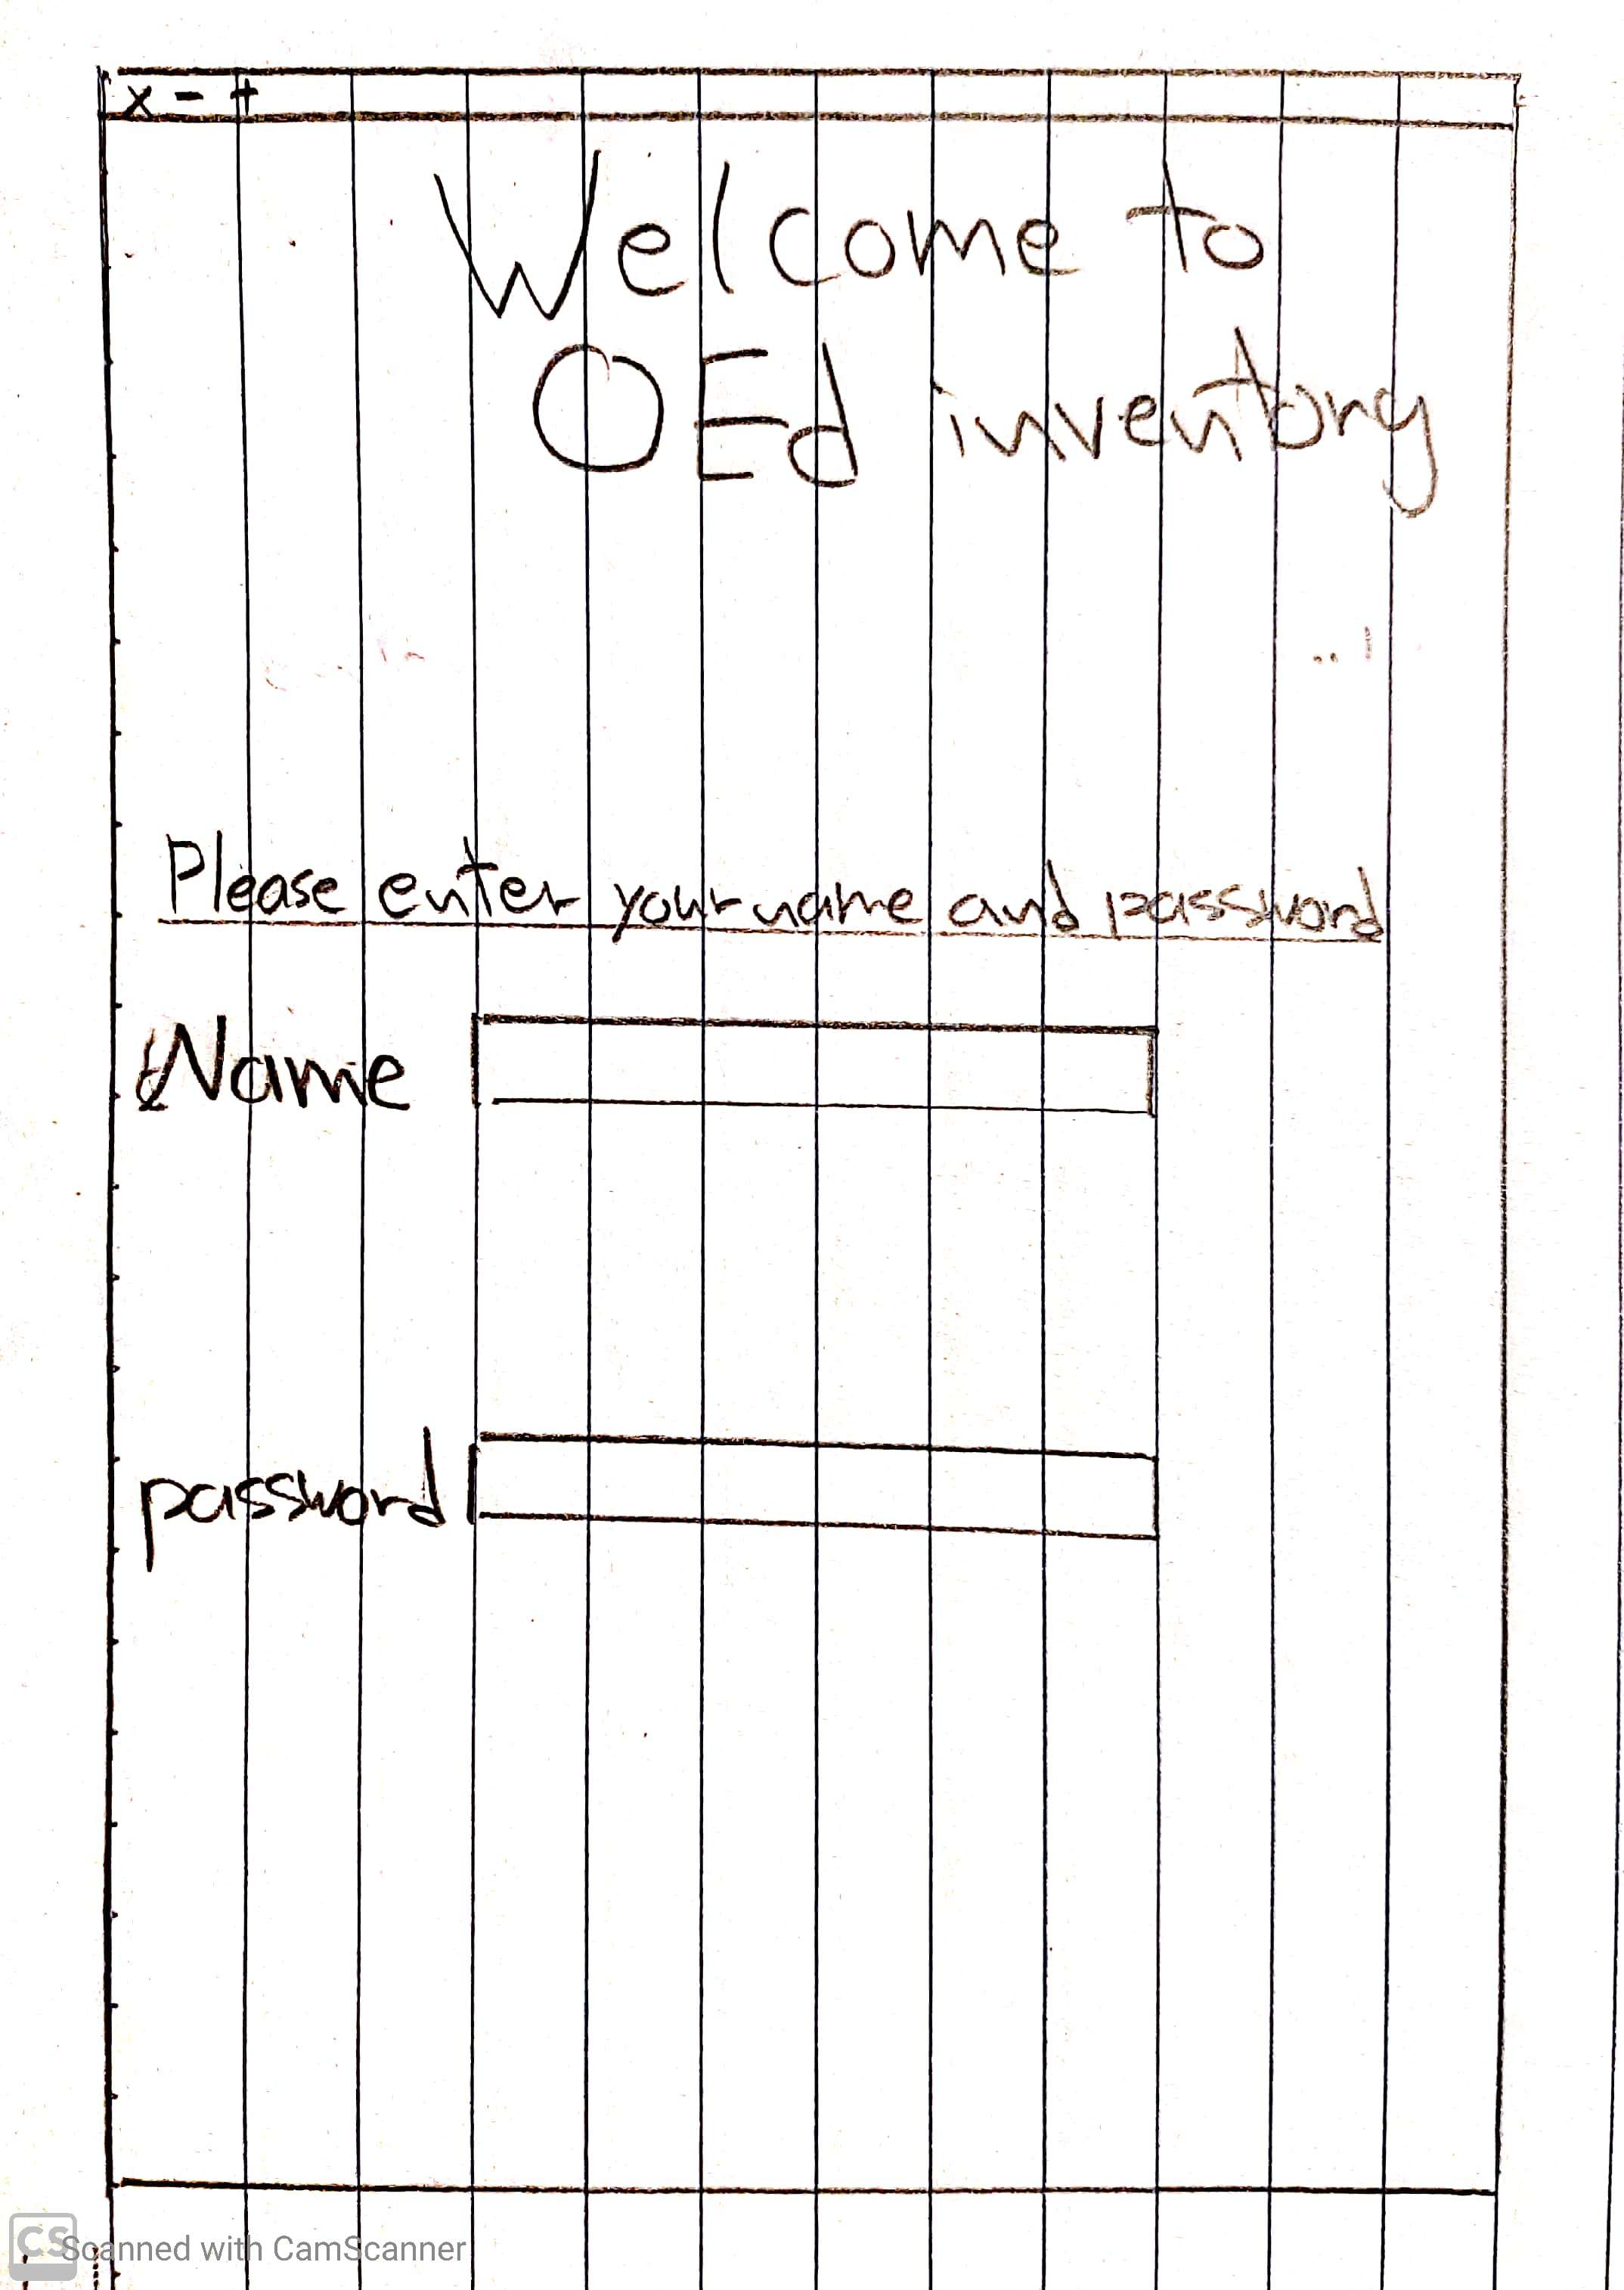 x - +
Welcome to
OEd inventory
Please enter your name and password
Name
password
CS Scanned with CamScanner